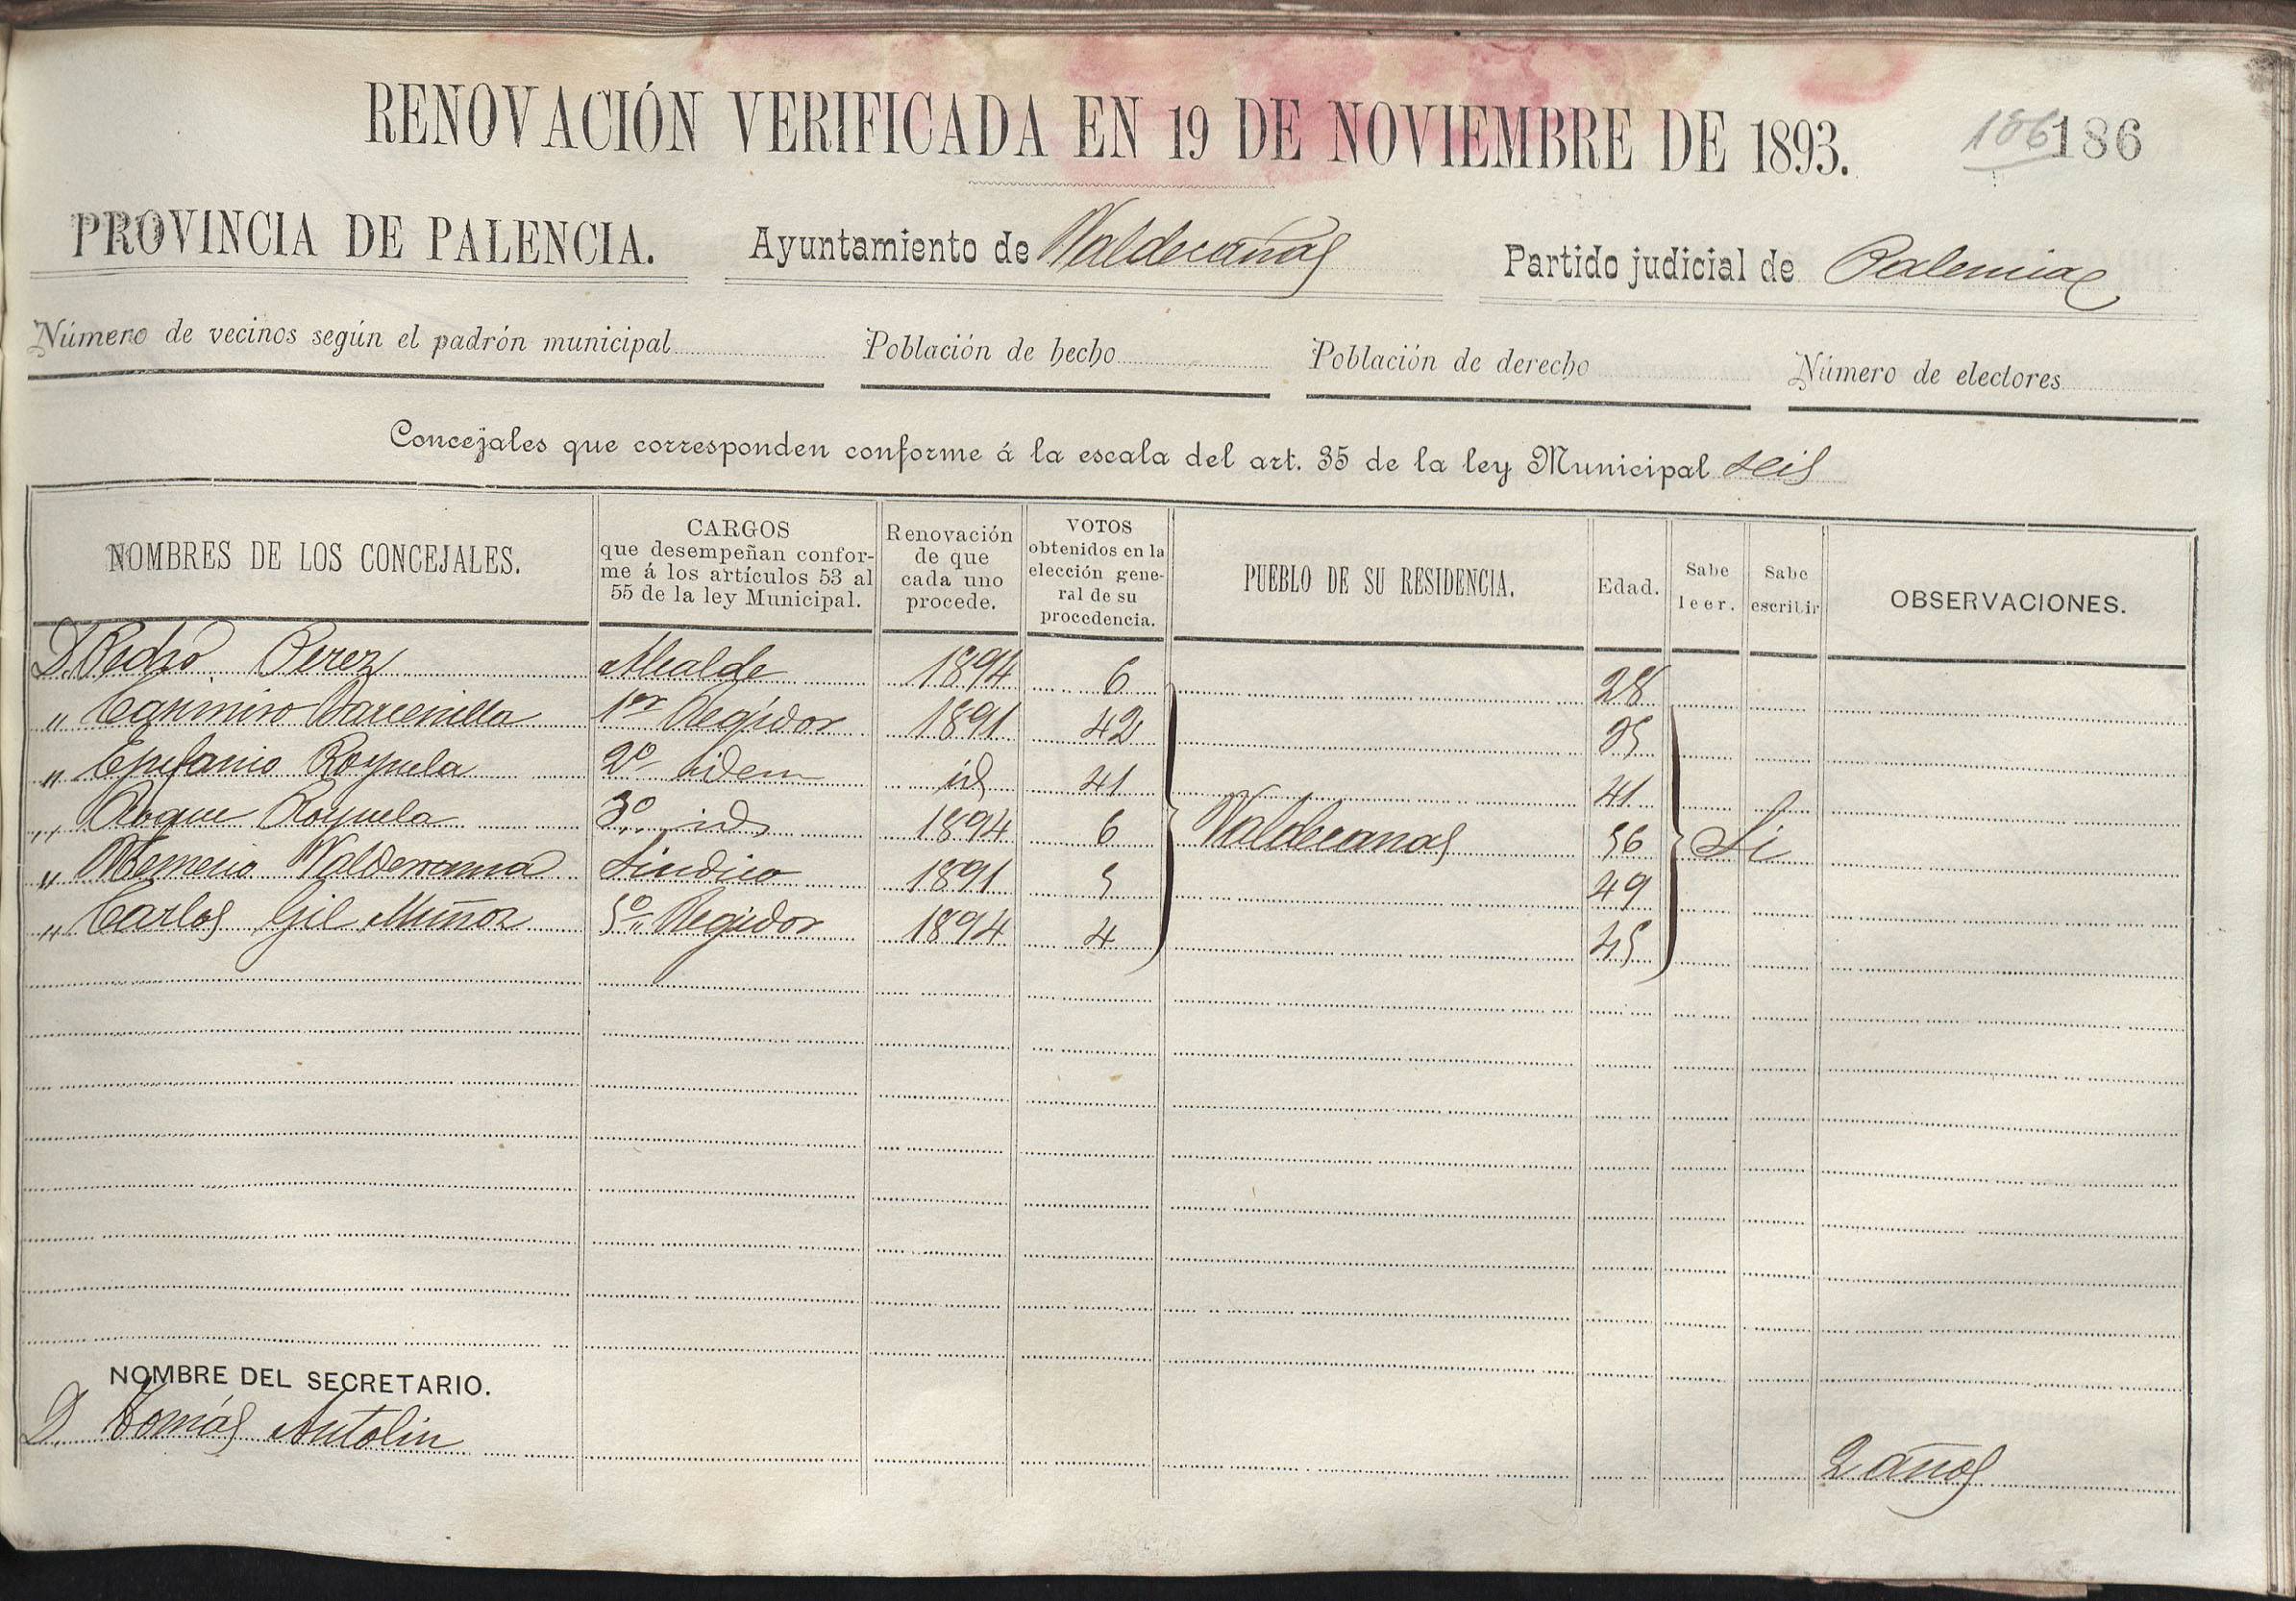 RENOVACIÓN VERIFICADA EN 19 DE NOVIEMBRE DE 1893.
186 186
PROVINCIA DE PALENCIA. Ayuntamiento de Valdecañas Partido judicial de Palencia
Número de vecinos según el padrón municipal Población de hecho Población de derecho Número de electores
Concejales que corresponden conforme á la escala del art. 35 de la ley Municipal seis
NOMBRES DE LOS CONCEJALES.
CARGOS
que desempeñan confor-
me á los artículos 53 al
55 de la ley Municipal.
Renovación
de que
cada uno
procede.
VOTOS
obtenidos en la
elección gene-
ral de su
procedencia.
PUEBLO DE SU RESIDENCIA.
Edad.
Sabe
leer.
Sabe
escribir
OBSERVACIONES.
D. Pedro Perez Alcalde 1894 6 28
" Casimiro Barcenilla 1er Regidor 1891 42 35
" Epifanio Royuela 2º idem id 41 41
" Roque Royuela 3º id 1894 6 Valdecanas 56 Si
" Nemesio Valderrama Sindico 1891 5 49
" Carlos Gil Muñoz 5º Regidor 1894 4 45
NOMBRE DEL SECRETARIO.
D. Tomás Antolin
2 años